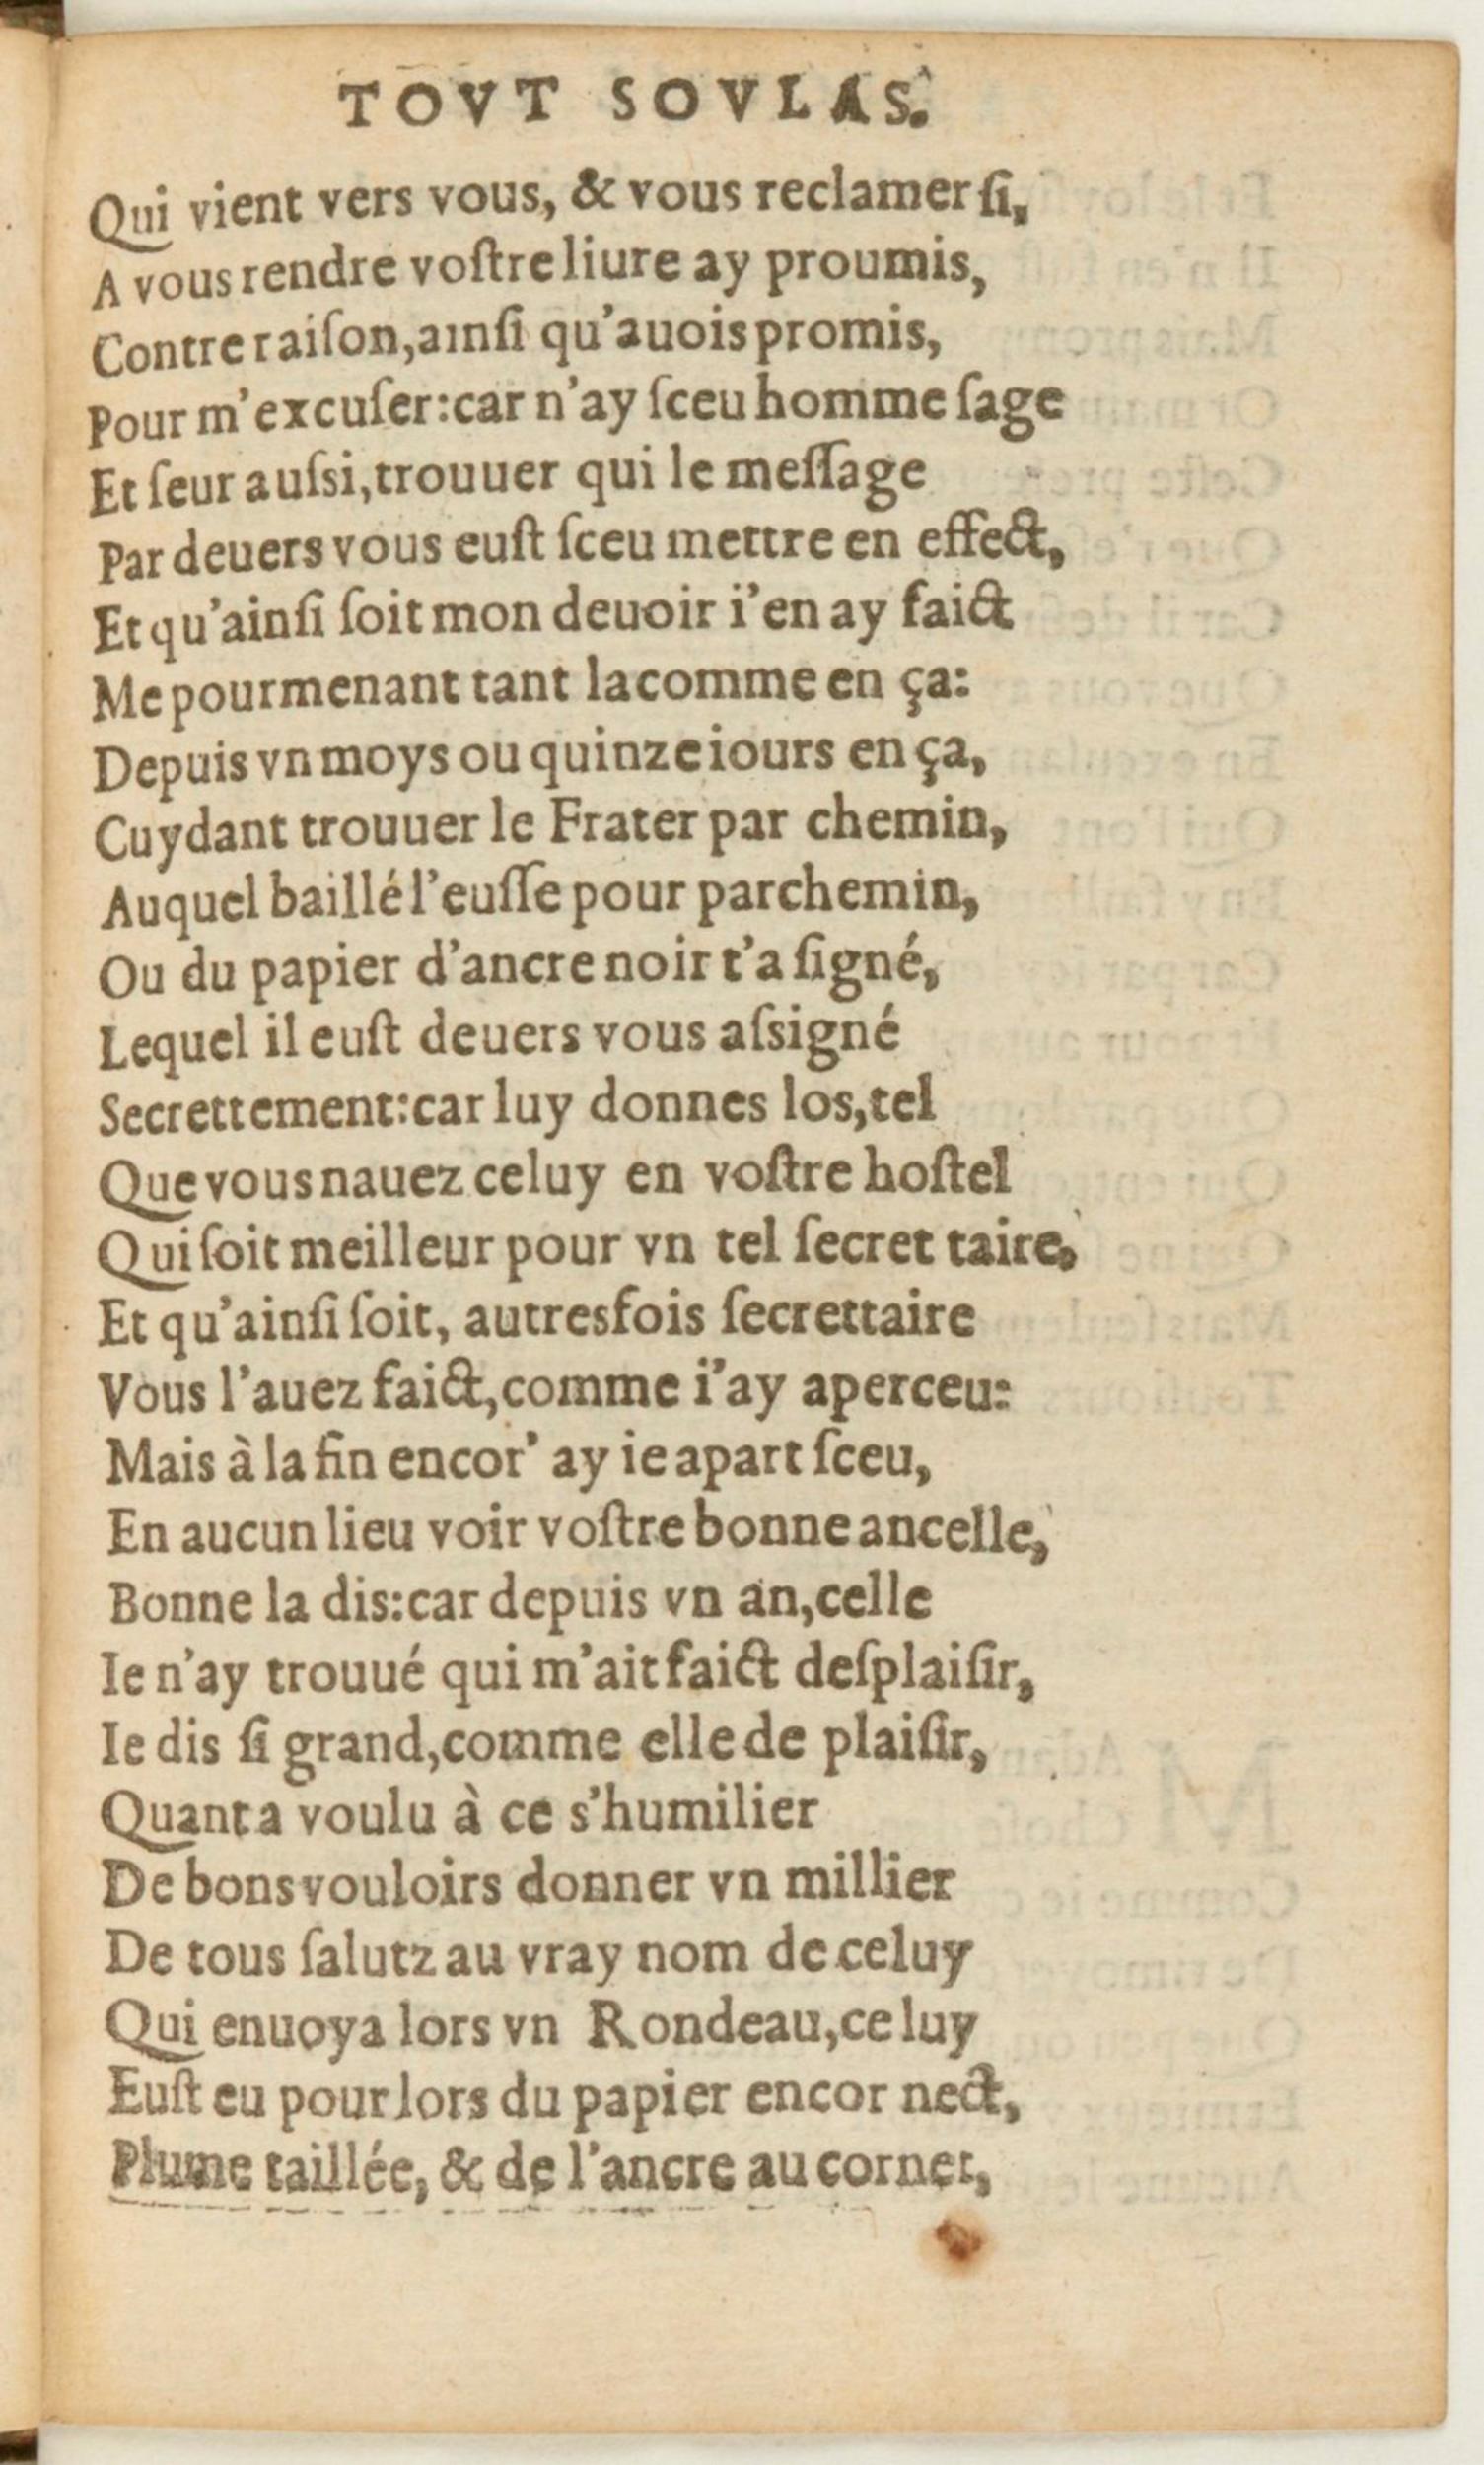 TOVT SOVLAS.
Qui vient vers vous, & vous reclamer ſi,
A vous rendre voſtre liure ay proumis,
Contre raiſon, ainſi qu'auois promis,
Pour m'excuſer: car n'ay ſceu homme ſage
Et ſeur auſsi, trouuer qui le meſſage
Par deuers vous euſt ſceu mettre en effect,
Et qu'ainſi ſoit mon deuoir i'en ay faict
Me pourmenant tant la comme en ça:
Depuis vn moys ou quinze iours en ça,
Cuydant trouuer le Frater par chemin,
Auquel baillé l'euſſe pour parchemin,
Ou du papier d'ancre noir t'a ſigné,
Lequel il euſt deuers vous aſsigné
Secrettement: car luy donnes los, tel
Que vous nauez celuy en voſtre hoſtel
Qui ſoit meilleur pour vn tel ſecret taire,
Et qu'ainſi ſoit, autresfois ſecrettaire
Vous l'auez faict, comme i'ay aperceu:
Mais à la fin encor' ay ie apart ſceu,
En aucun lieu voir voſtre bonne ancelle,
Bonne la dis: car depuis vn an, celle
Ie n'ay trouué qui m'ait faict deſplaiſir,
Ie dis ſi grand, comme elle de plaiſir,
Quant a voulu à ce s'humilier
De bons vouloirs donner vn millier
De tous ſalutz au vray nom de celuy
Qui enuoya lors vn Rondeau, ce luy
Euſt eu pour lors du papier encor nect,
Plume taillée, & de l'ancre au cornet,